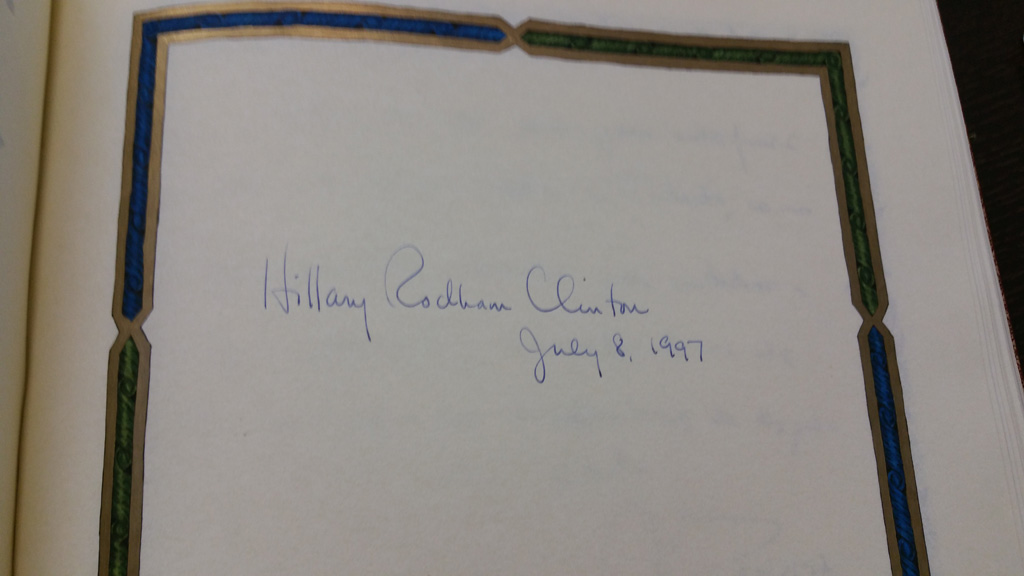 Hillary Rodham Clinton
July 8, 1997